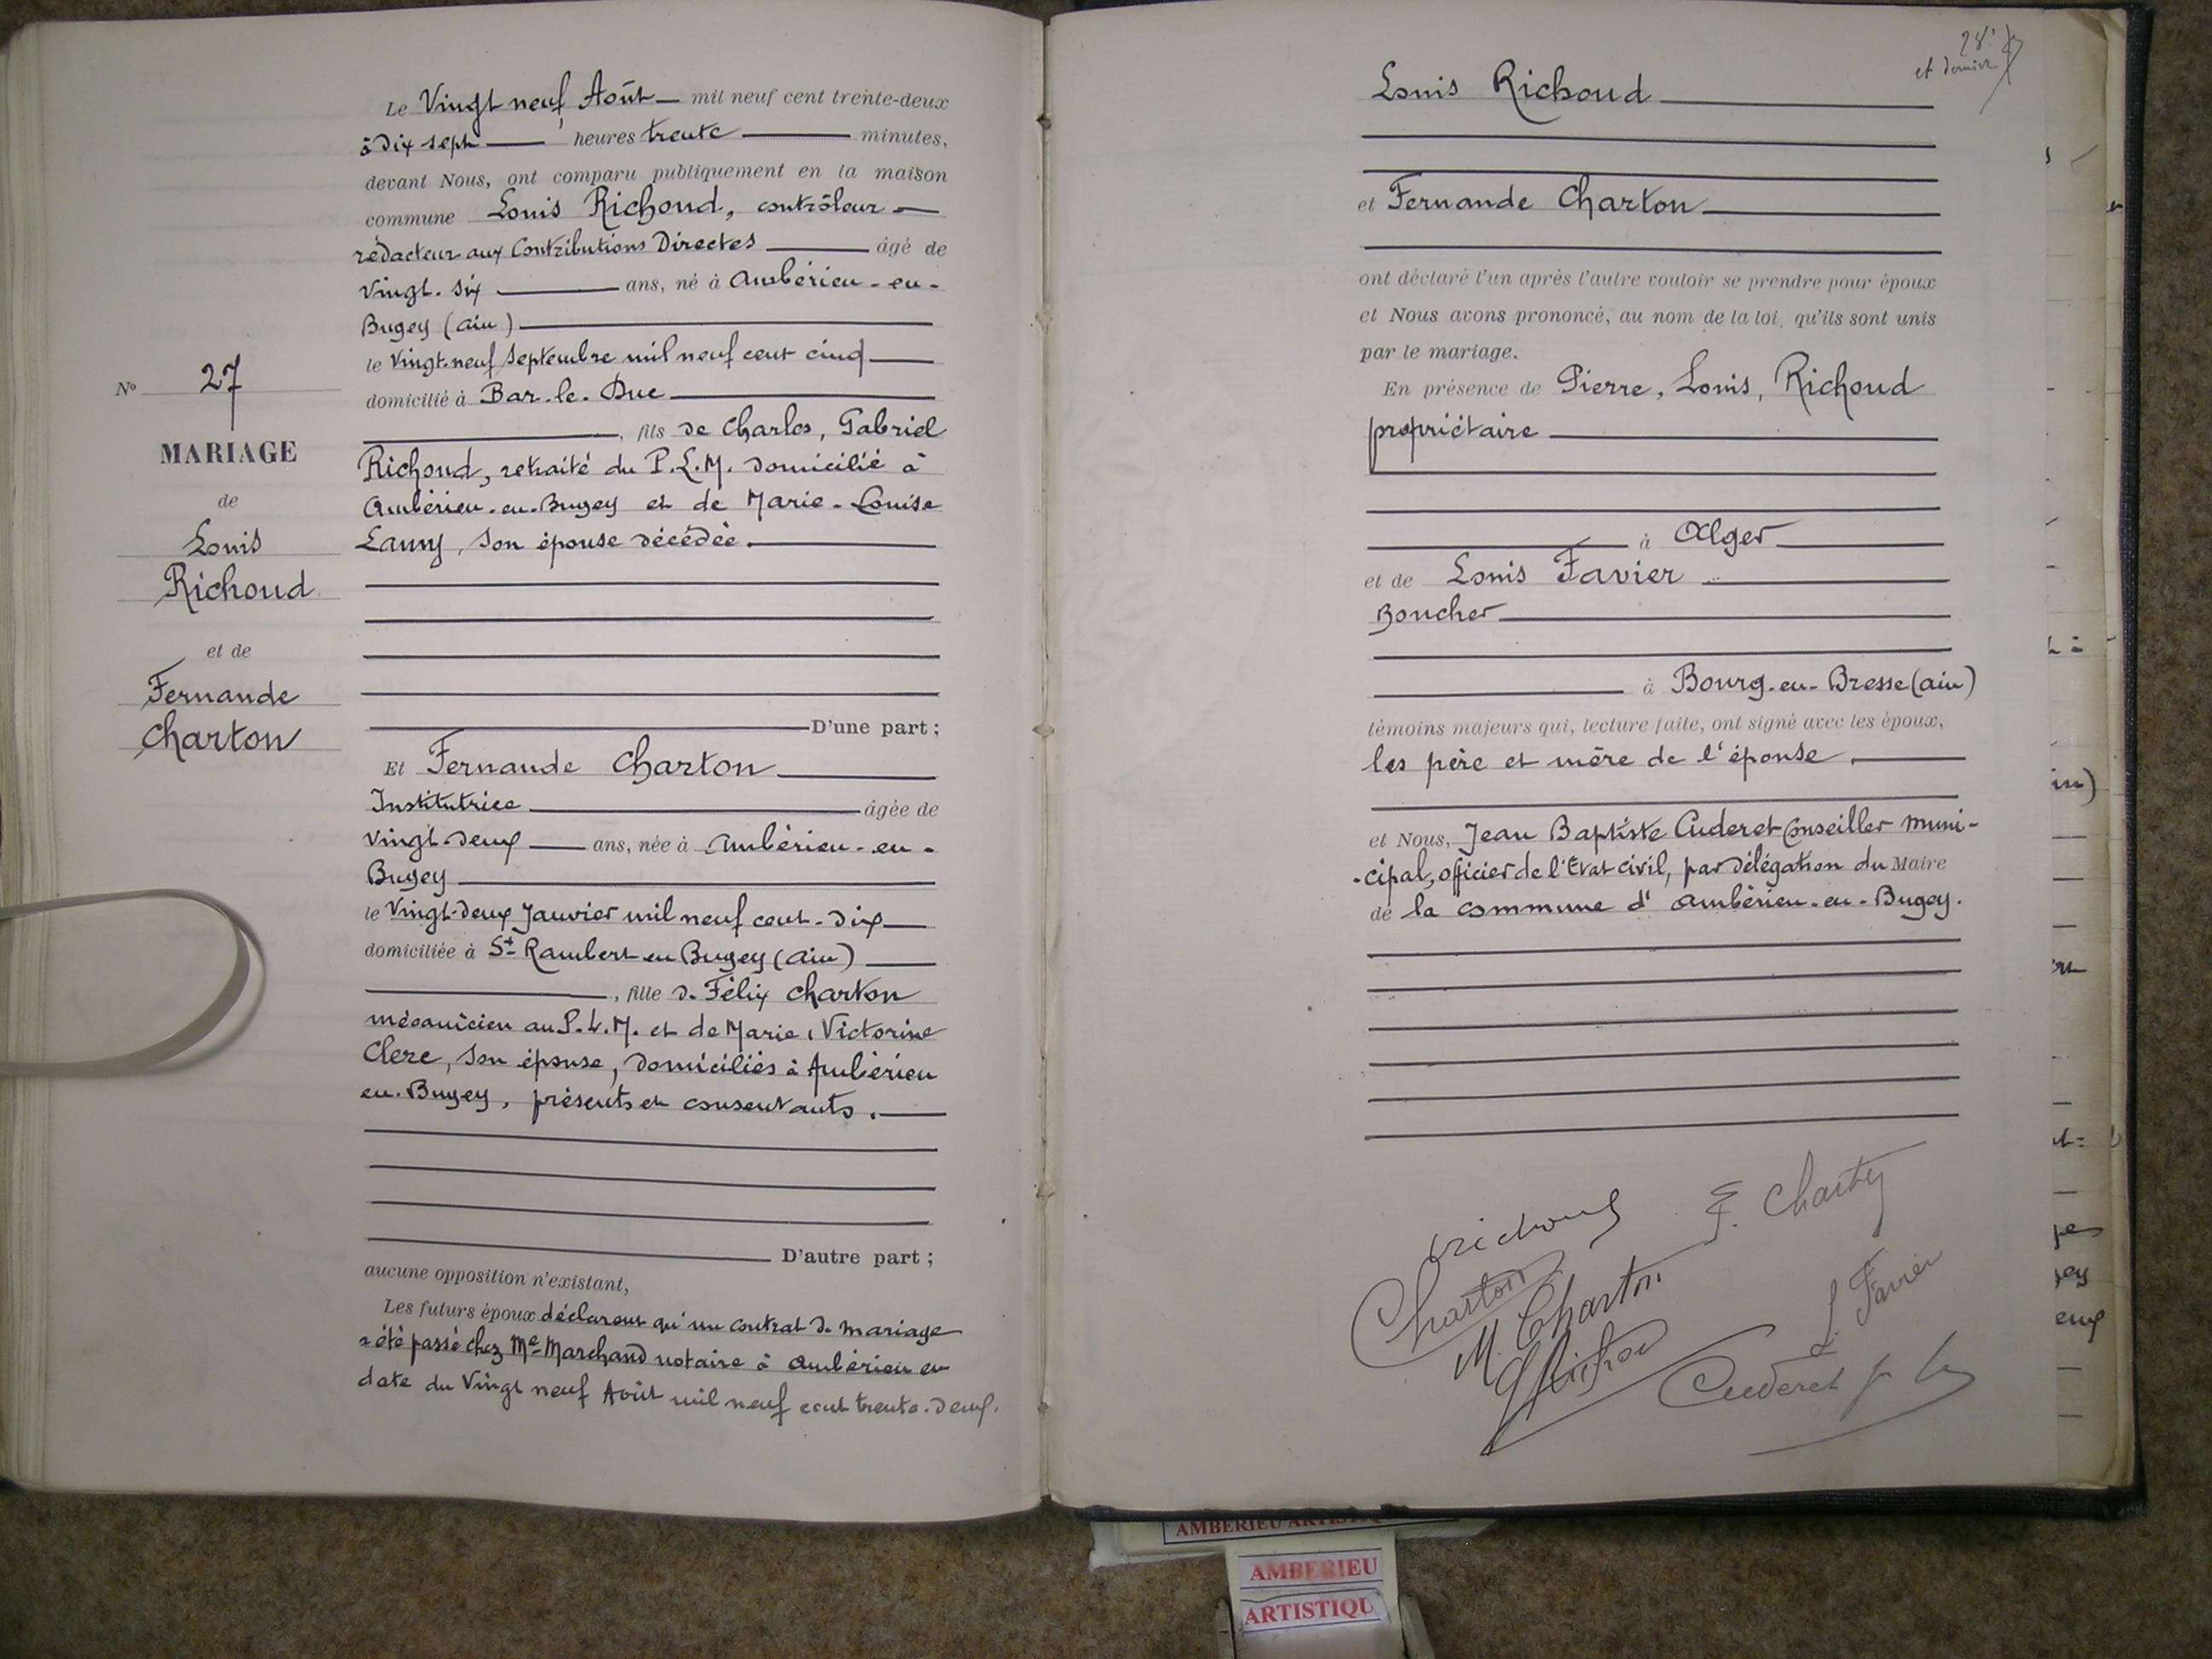 Le Vingt neuf Août mil neuf cent trente-deux
à Dix sept heures trente minutes,
devant Nous, ont comparu publiquement en la maison
commune Louis Richoud, contrôleur
rédacteur aux Contributions Directes âgé de
vingt-six ans, né à Ambérieu-en-
Bugey (Ain)
le vingt-neuf septembre mil neuf cent cinq
domicilié à Bar-le-Duc
, fils de Charles, Gabriel
Richoud, retraité du P.L.M. domicilié à
Ambérieu-en-Bugey et de Marie-Louise
son épouse décédée.
D'une part ;
Et Fernande Charton
Institutrice âgée de
vingt-deux ans, née à Ambérieu-en-
Bugey
le Vingt-deux Janvier mil neuf cent-dix
domiciliée à St Rambert en Bugey (Ain)
, fille de Félix Charton
mécanicien au P.L.M. et de Marie, Victorine
Clerc, son épouse, domiciliés à Ambérieu
en-Bugey, présents et consentants.
D'autre part ;
aucune opposition n'existant,
Les futurs époux déclarent qu'un contrat de mariage
a été passé chez Me Marchand notaire à Ambérieu en
date du Vingt neuf Août mil neuf cent trente-deux.
No 27
MARIAGE
de
Louis
Richoud
et de
Fernande
Charton
28e
et dernier
Louis Richoud
et Fernande Charton
ont déclaré l'un après l'autre vouloir se prendre pour époux
et Nous avons prononcé, au nom de la loi, qu'ils sont unis
par le mariage.
En présence de Pierre, Louis, Richoud
propriétaire
à Alger
et de Louis Favier
Boucher
à Bourg-en-Bresse (Ain)
témoins majeurs qui, lecture faite, ont signé avec les époux,
les père et mère de l'épouse.
et Nous, Jean Baptiste Cuderet Conseiller muni-
-cipal, officier de l'Etat civil, par délégation du Maire
de la commune d'Ambérieu-en-Bugey.
Richoud
F. Charton
Charton
M. Charton
L. Favier
Cuderet
AMBERIEU ARTISTIQU
AMBERIEU
ARTISTIQU